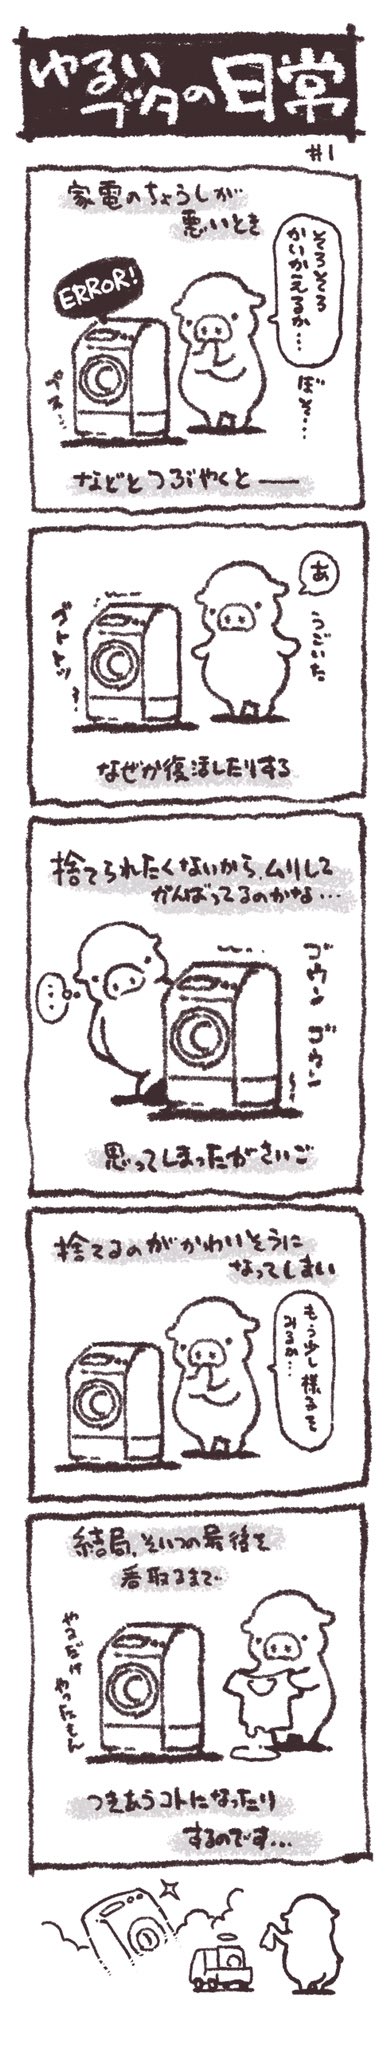 ゆるい
ブタの日常
#1
家電のちょうしが
悪いとき
そろそろ
かいかえるか…
ぼそ…
ERROR!
プス…
などとつぶやくと——
あ
うごいた
ゴトトッ…
なぜか復活したりする
捨てられたくないから、ムリして
がんばってるのかな…
…
ゴウン ゴウン
思ってしまったがさいご
捨てるのがかわいそうに
なってしまい
もう少し様子を
みるか…
結局、そいつの最後を
看取るまで
やるだけ
やったもん
つきあうコトになったり
するのです…